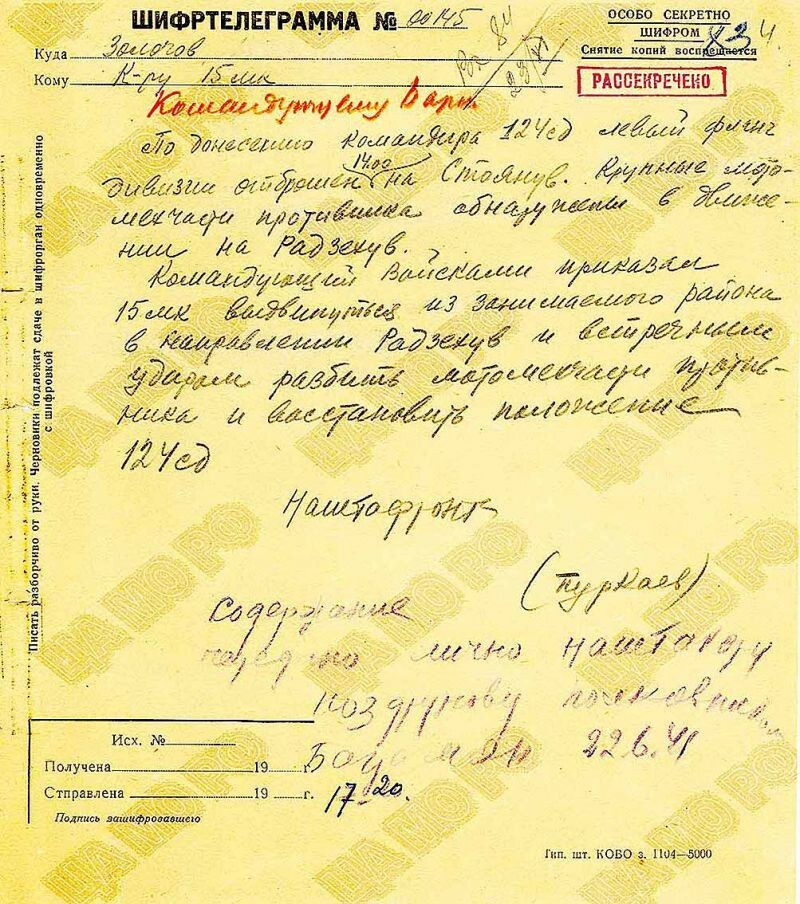 ШИФРТЕЛЕГРАММА № 00145
ОСОБО СЕКРЕТНО
ШИФРОМ
Снятие копий воспрещается
Куда Золочов
Кому К-ру 15 мк
РАССЕКРЕЧЕНО
Командующему
По донесению командира 124сд левый фланг
дивизии отброшен 14.00 на Стоянув. Крупные мото-
мехчасти противника обнаружены в движе-
нии на Радзехув.
Командующий Войсками приказал
15мк выдвинуться из занимаемого района
в направлении Радзехув и встречным
ударом разбить мотомехчасти против-
ника и восстановить положение
124сд
Наштафронт
(Пуркаев)
Содержание
передано лично наштакору
полковник
22.6.41
17-20.
Писать разборчиво от руки. Черновики подлежат сдаче в шифрорган одновременно
с шифровкой
Исх. №
Получена 19 г.
Отправлена 19 г.
Подпись зашифровавшего
Тип. шт. КОВО з. 1104—5000
ЦА МО РФ